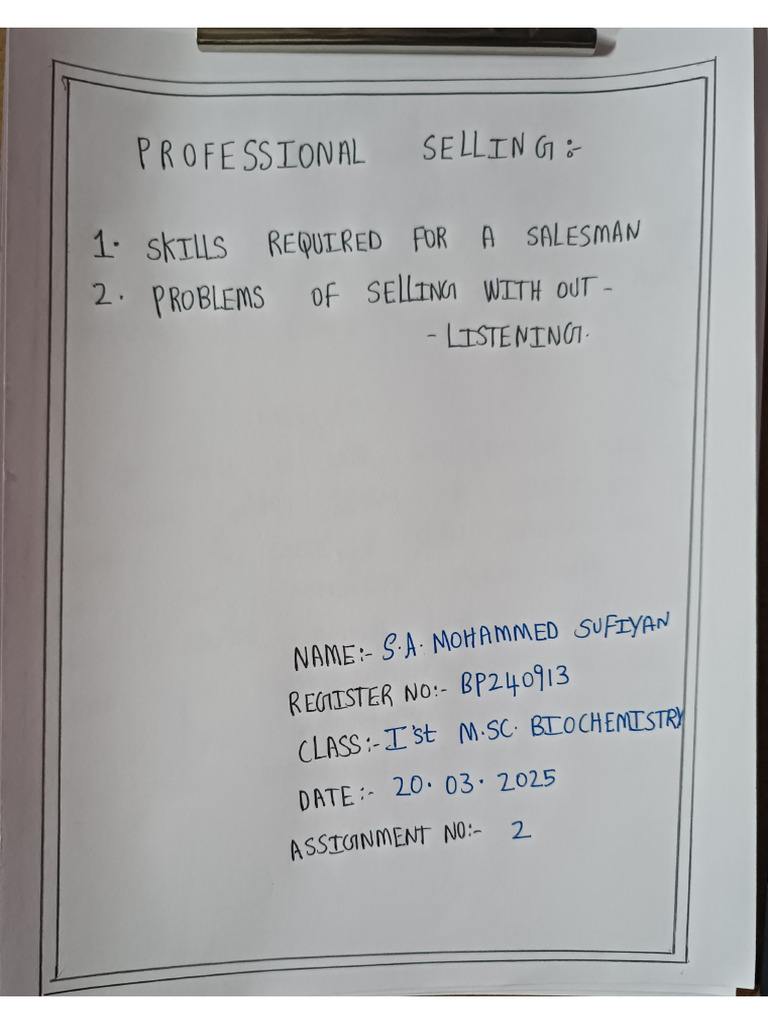 PROFESSIONAL SELLING:-
1. SKILLS REQUIRED FOR A SALESMAN
2. PROBLEMS OF SELLING WITH OUT -
- LISTENING.
NAME:- S.A. MOHAMMED SUFIYAN
REGISTER NO:- BP240913
CLASS:- I'st M.SC. BIOCHEMISTRY
DATE:- 20.03.2025
ASSIGNMENT NO:- 2